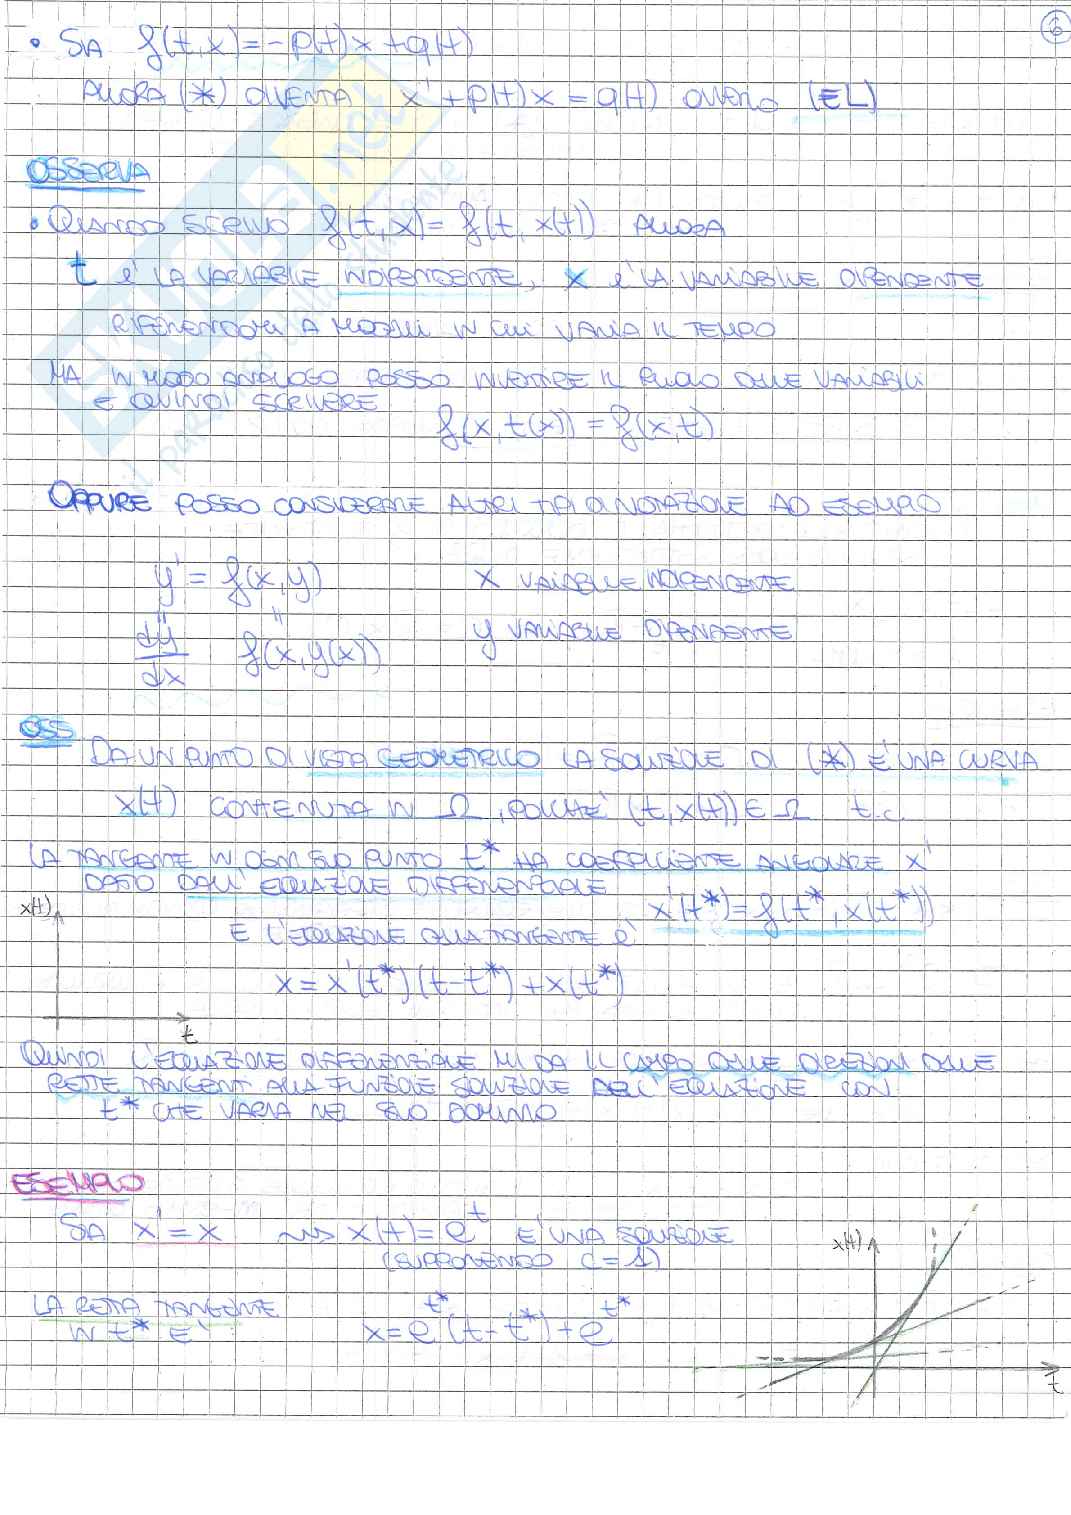 6
• SIA f(t,x)=-p(t)x+q(t)
ALLORA (*) DIVENTA x'+p(t)x=q(t) OVVERO (EL)
OSSERVA
• QUANDO SCRIVO f(t,x)=f(t,x(t)) ALLORA
t E' LA VARIABILE INDIPENDENTE, x E' LA VARIABILE DIPENDENTE
RIFERENDOMI A MODELLI IN CUI VARIA IL TEMPO
MA IN MODO ANALOGO POSSO INVERTIRE IL RUOLO DELLE VARIABILI
E QUINDI SCRIVERE
f(x,t(x))=f(x,t)
OPPURE POSSO CONSIDERARE ALTRI TIPI DI NOTAZIONE AD ESEMPIO
y'=f(x,y) x VARIABILE INDIPENDENTE
" "
dy/dx f(x,y(x)) y VARIABILE DIPENDENTE
OSS
DA UN PUNTO DI VISTA GEOMETRICO LA SOLUZIONE DI (*) E' UNA CURVA
x(t) CONTENUTA IN Ω, POICHE' (t,x(t))∈Ω t.c.
LA TANGENTE IN OGNI SUO PUNTO t* HA COEFFICIENTE ANGOLARE x'
DATO DALL'EQUAZIONE DIFFERENZIALE
x'(t*)=f(t*,x(t*))
x(t)
E L'EQUAZIONE DELLA TANGENTE E'
x=x'(t*)(t-t*)+x(t*)
t
QUINDI L'EQUAZIONE DIFFERENZIALE MI DA IL CAMPO DELLE DIREZIONI DELLE
RETTE TANGENTI ALLA FUNZIONE SOLUZIONE DELL'EQUAZIONE CON
t* CHE VARIA NEL SUO DOMINIO
ESEMPIO
SIA x'=x ⟿ x(t)=e^t E' UNA SOLUZIONE
(SUPPONENDO C=1)
x(t)
LA RETTA TANGENTE
IN t* E' x=e^t*(t-t*)+e^t*
t